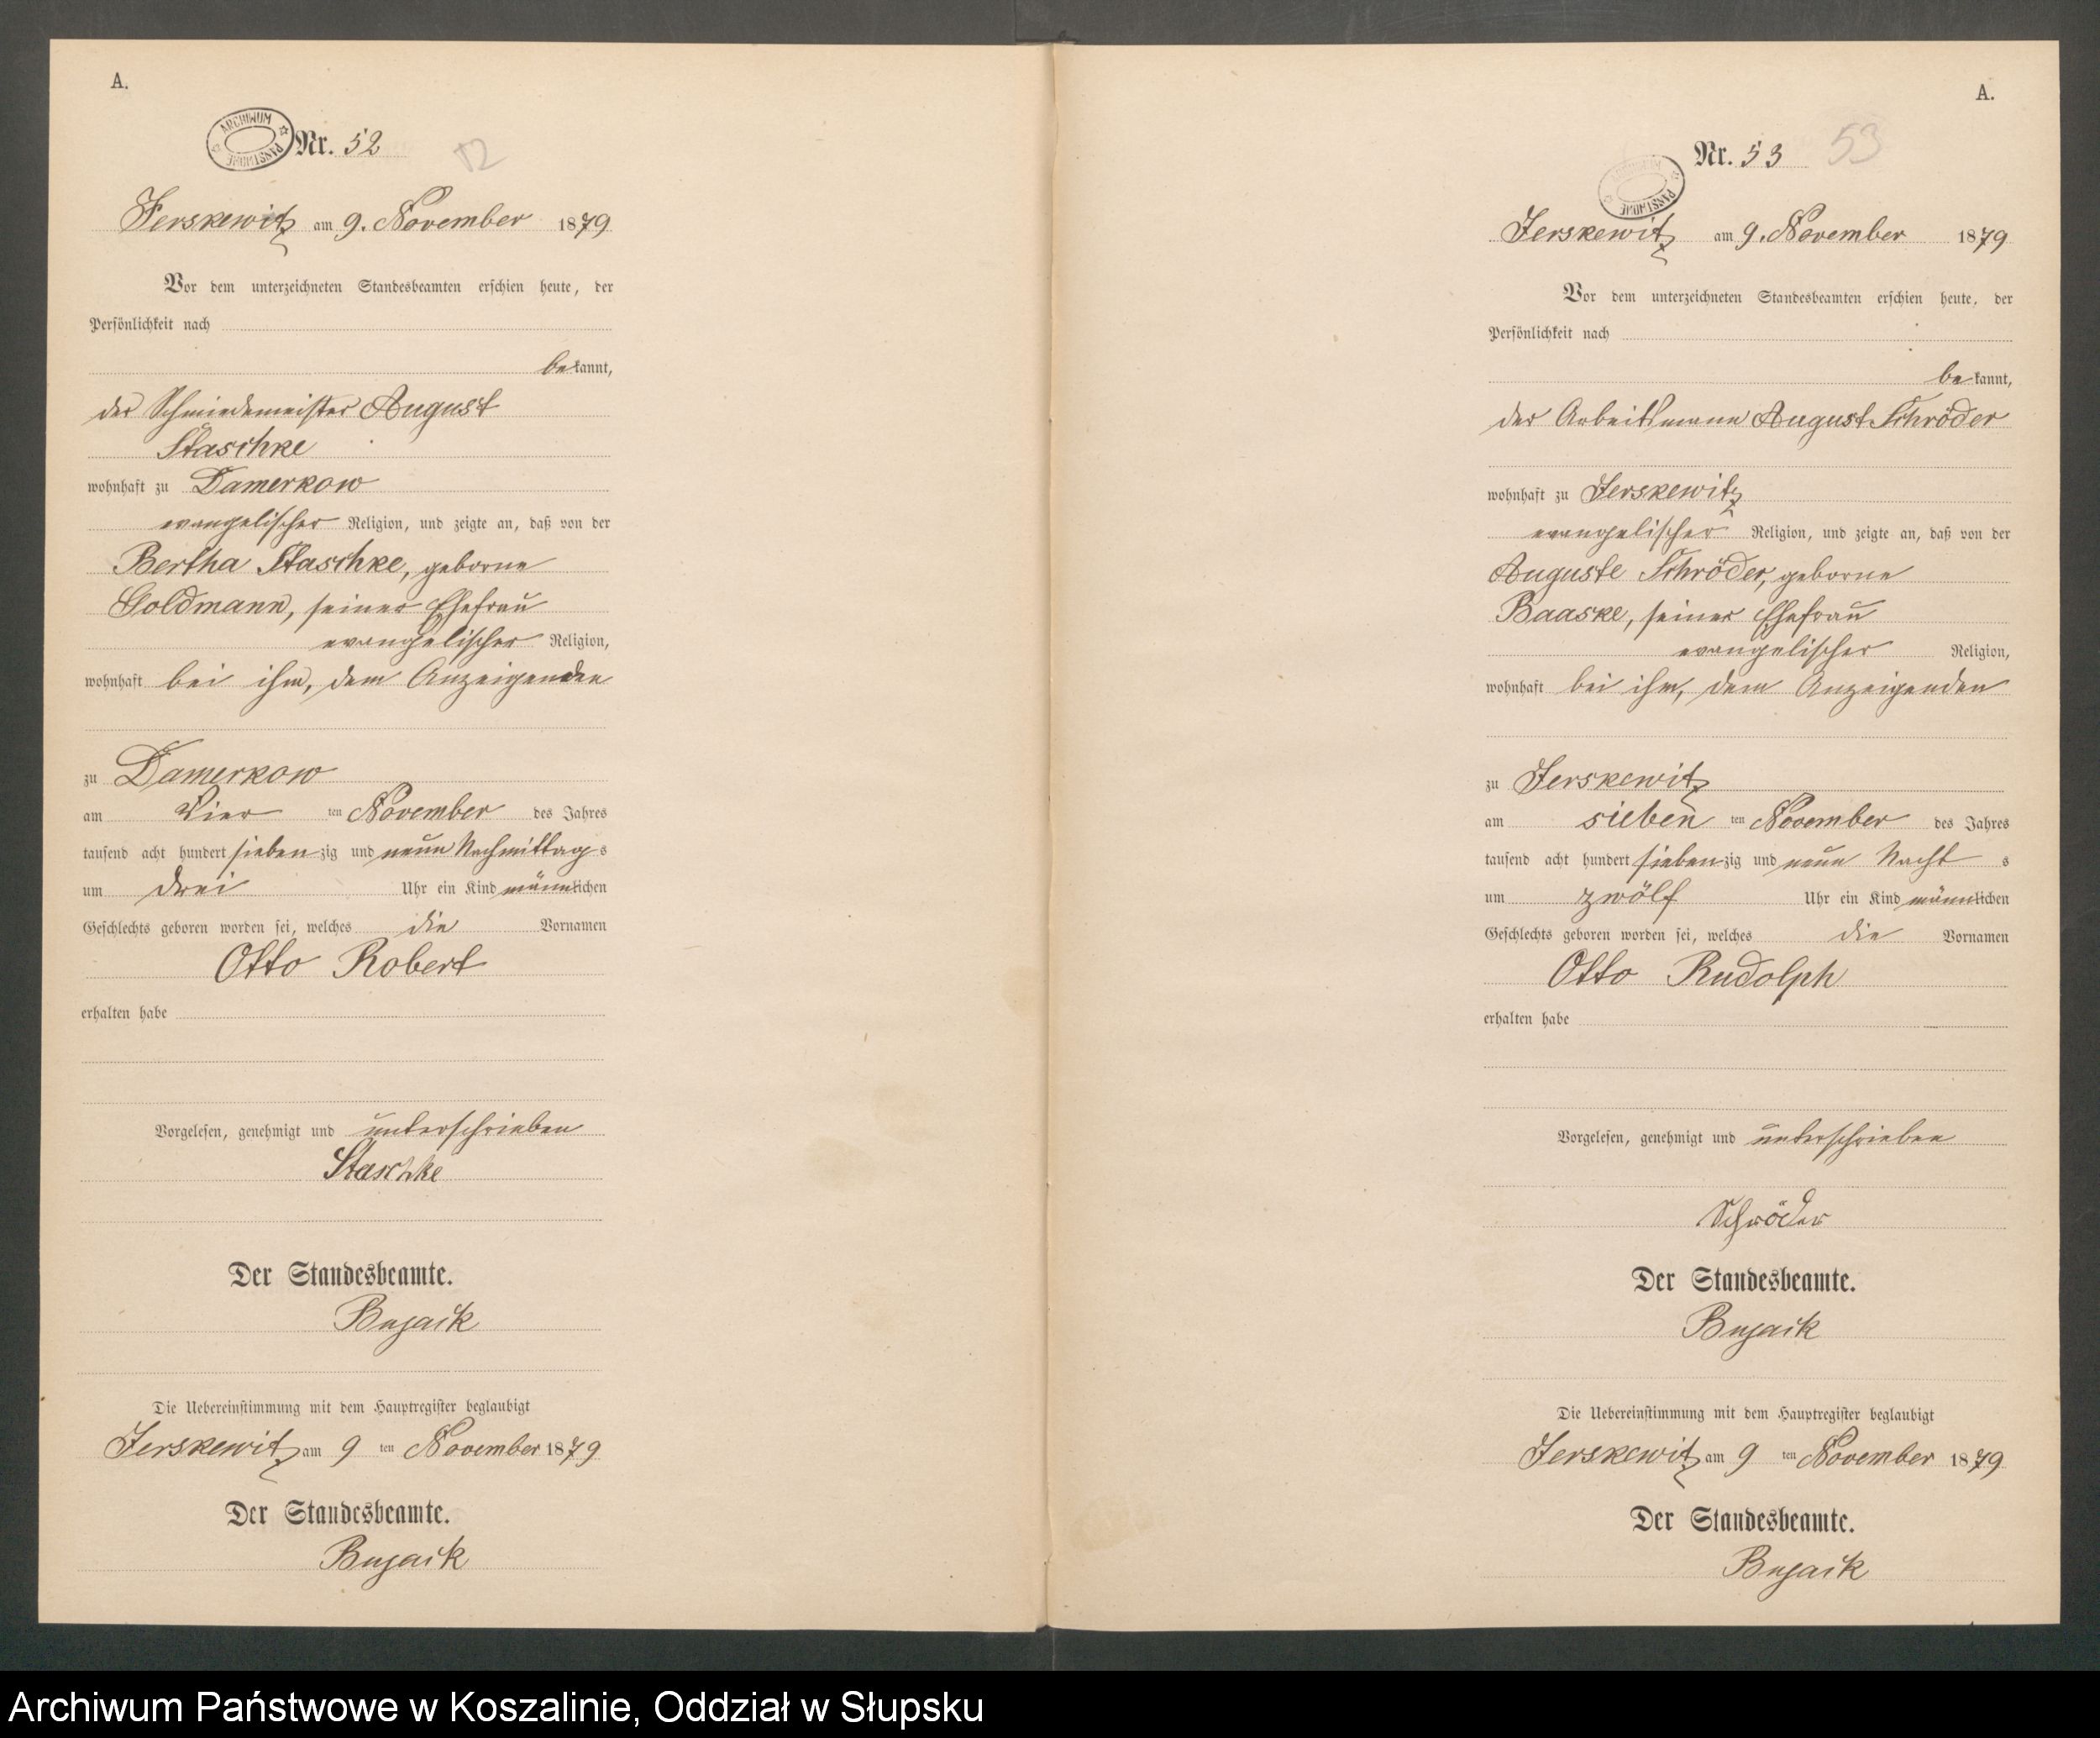 A.
ARCHIWUM PAŃSTWOWE
Nr. 52
52
Jerskewitz am 9. November 1879
Vor dem unterzeichneten Standesbeamten erschien heute, der
Persönlichkeit nach
bekannt,
der Schmiedemeister August
Staschke
wohnhaft zu Damerkow
evangelischer Religion, und zeigte an, daß von der
Bertha Staschke, geborne
Goldmann, seiner Ehefrau
evangelischer Religion,
wohnhaft bei ihm, dem Anzeigenden
zu Damerkow
am Vier ten November des Jahres
tausend acht hundert siebenzig und neun Nachmittags
um drei Uhr ein Kind männlichen
Geschlechts geboren worden sei, welches die Vornamen
Otto Robert
erhalten habe
Vorgelesen, genehmigt und unterschrieben
Staschke
Der Standesbeamte.
Bujack
Die Uebereinstimmung mit dem Hauptregister beglaubigt
Jerskewitz am 9 ten November 1879
Der Standesbeamte.
Bujack
A.
Nr. 53
53
ARCHIWUM PAŃSTWOWE
Jerskewitz am 9. November 1879
Vor dem unterzeichneten Standesbeamten erschien heute, der
Persönlichkeit nach
bekannt,
der Arbeitsmann August Schröder
wohnhaft zu Jerskewitz
evangelischer Religion, und zeigte an, daß von der
Auguste Schröder, geborne
Baaske, seiner Ehefrau
evangelischer Religion,
wohnhaft bei ihm, dem Anzeigenden
zu Jerskewitz
am sieben ten November des Jahres
tausend acht hundert siebenzig und neun Nacht s
um zwölf Uhr ein Kind männlichen
Geschlechts geboren worden sei, welches die Vornamen
Otto Rudolph
erhalten habe
Vorgelesen, genehmigt und unterschrieben
Schröder
Der Standesbeamte.
Bujack
Die Uebereinstimmung mit dem Hauptregister beglaubigt
Jerskewitz am 9 ten November 1879
Der Standesbeamte.
Bujack
Archiwum Państwowe w Koszalinie, Oddział w Słupsku